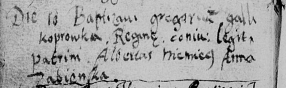 Die 10 Baptizaui gregoriu galli
koprowka, Reginę coniu: legit:
patrini Albertus niemiec Anna